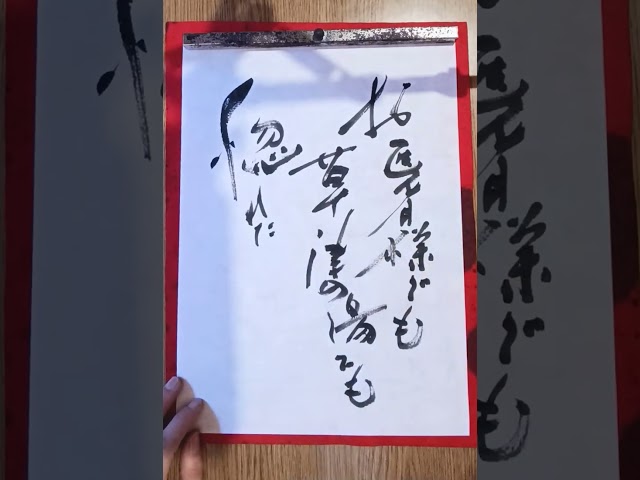 お医者様でも
草津の湯でも
惚れた